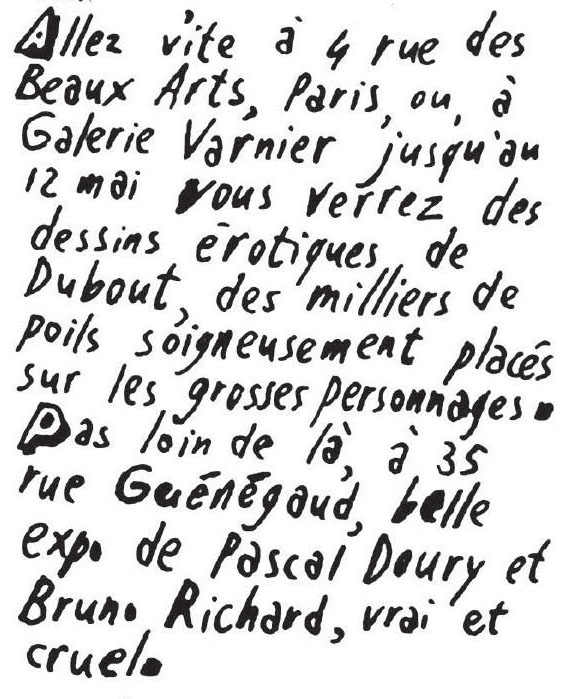 Allez vite à 4 rue des
Beaux Arts, Paris, ou, à
Galerie Varnier jusqu'au
12 mai vous verrez des
dessins érotiques de
Dubout, des milliers de
poils soigneusement placés
sur les grosses personnages.
Pas loin de là, à 35
rue Guénégaud, belle
exp. de Pascal Doury et
Bruno Richard, vrai et
cruel.